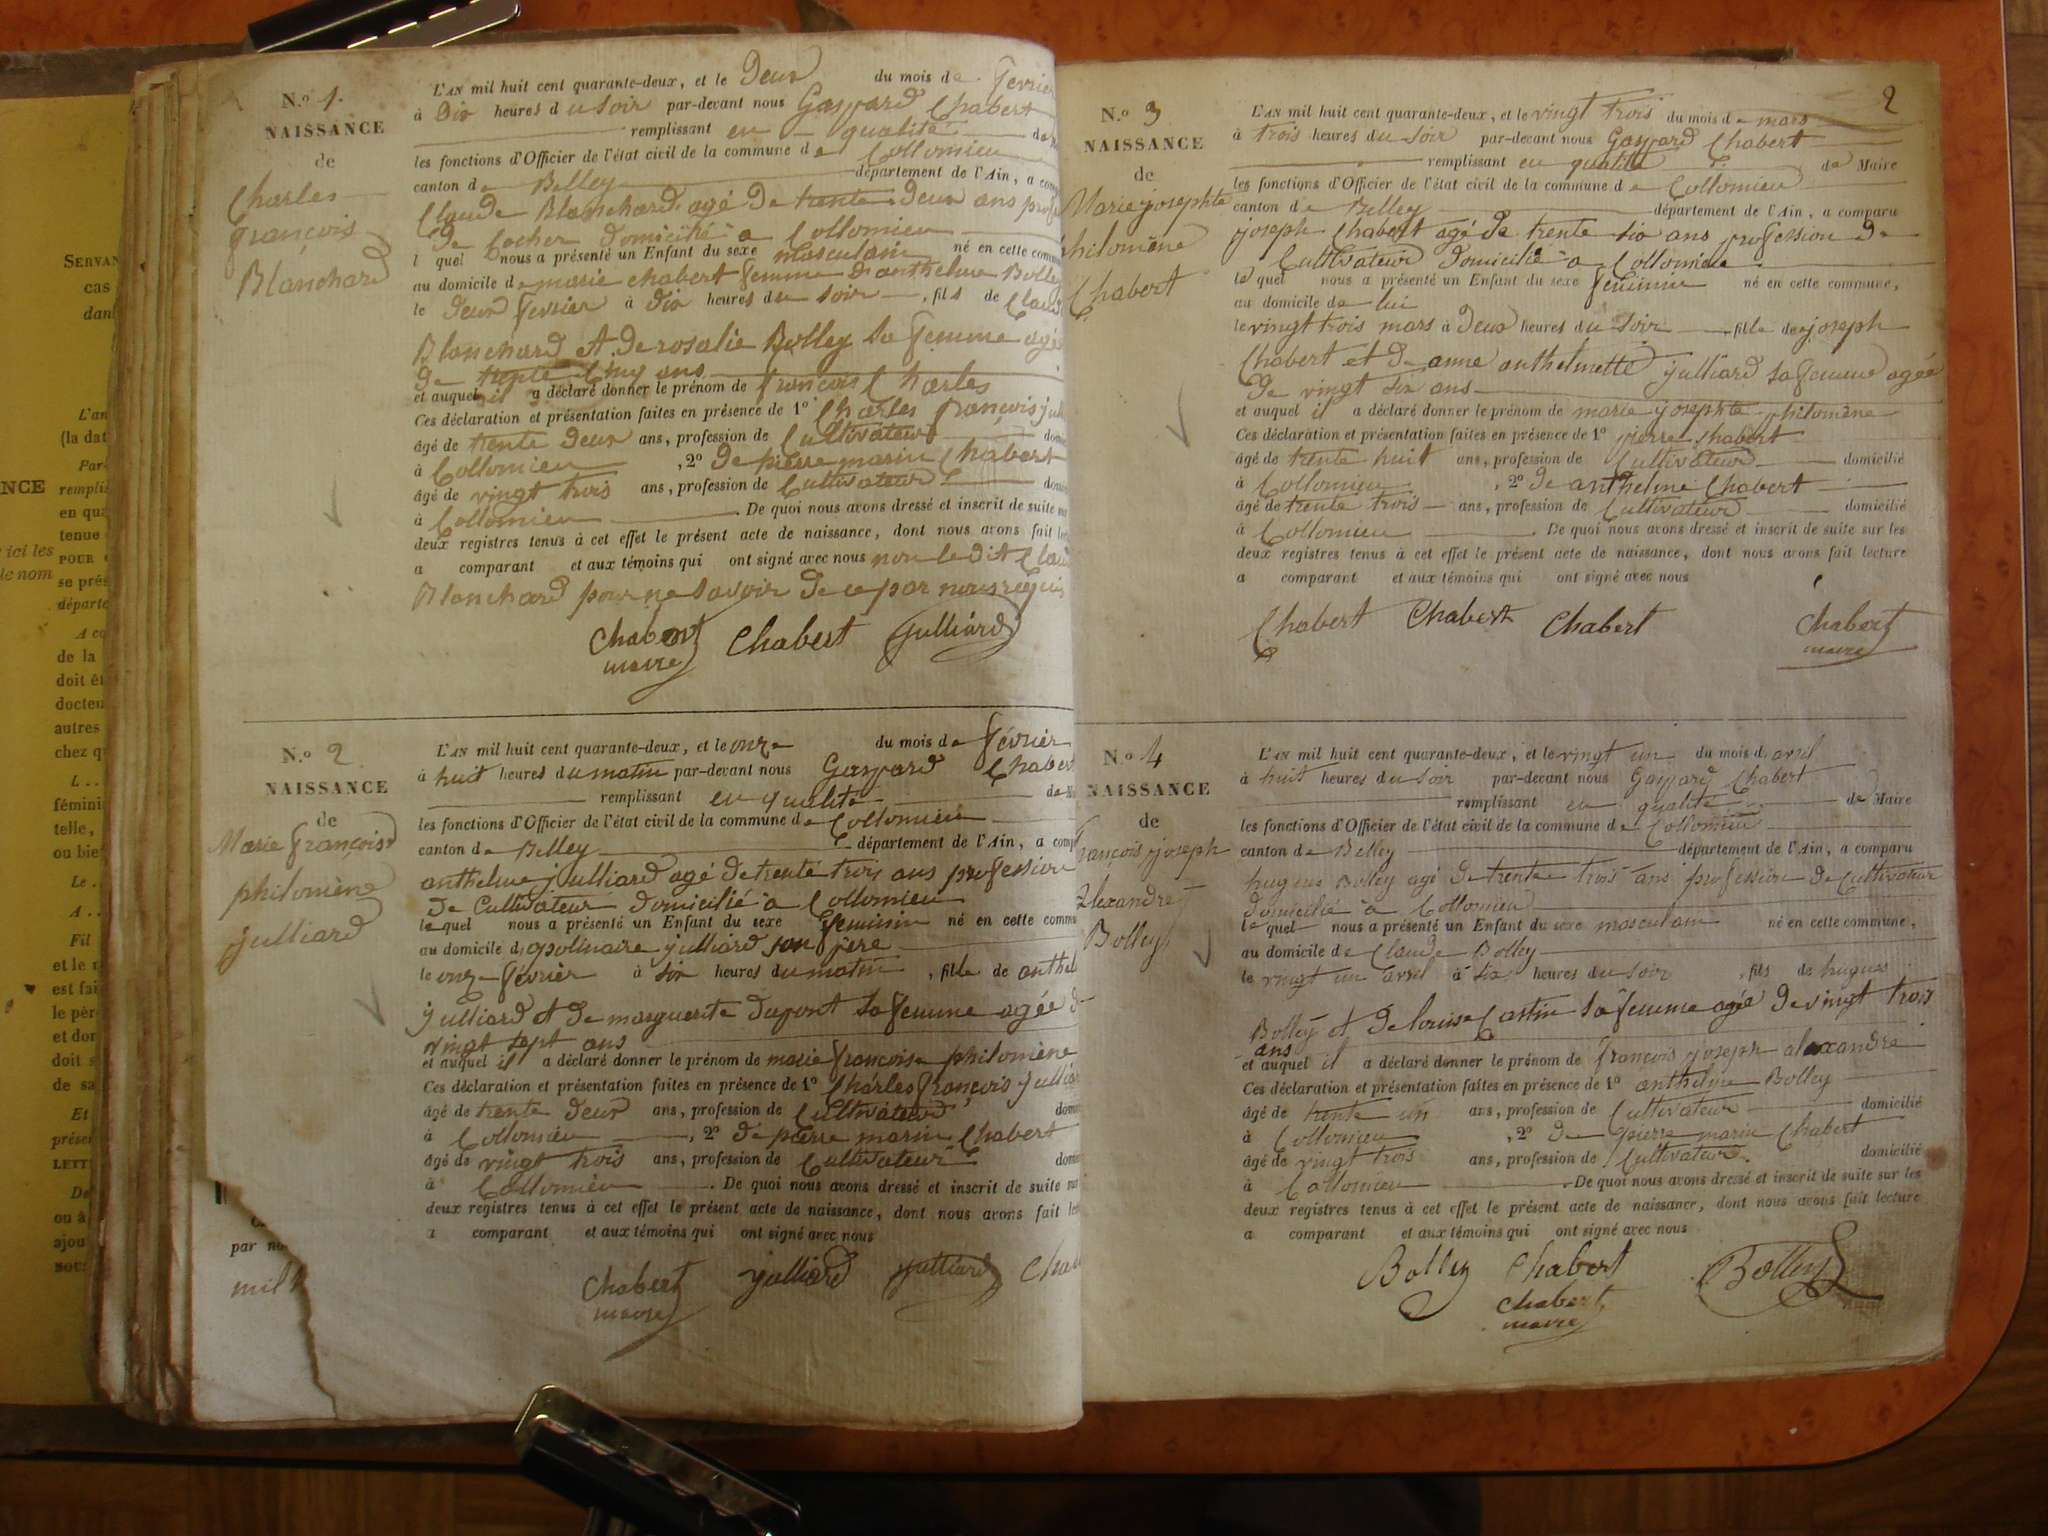 SERVAN
cas
dan
L'an
(la dat
Par-
NCE remplis
en qua
tenue
ici les POUR
le nom se prés
départe
A co
de la
doit êt
docteu
autres
chez q
L . .
fémini
telle,
ou bie
Le .
A . .
Fil
et le
est fai
le pèr
et don
doit s
de sa
Et
prése
LETT
De
ou à
ajou
nous
par no
mil
N.º 1.
NAISSANCE
de
Charles
françois
Blanchard
L'AN mil huit cent quarante-deux, et le Deux du mois de fevrier
à Dix heures du soir par-devant nous Gaspard Chabert
remplissant en qualité de
les fonctions d'Officier de l'état civil de la commune de Collomieu
canton de Belley département de l'Ain, a comp
Claude Blanchard agé De trente Deux ans profe
De Cocher Domicilié a Collomieu
l quel nous a présenté un Enfant du sexe masculain né en cette commu
au domicile de marie chabert femme D'anthelme Bolley
le Deux fevrier à Dix heures du soir, fils de Claude
Blanchard et de rosalie Bolley Sa femme agée
De trente Cinq ans
et auquel il a déclaré donner le prénom de françois Charles
Ces déclaration et présentation faites en présence de 1º Charles françois jull
âgé de trente Deux ans, profession de Cultivateur domi
à Collomieu, 2º De pierre marin Chabert
âgé de vingt trois ans, profession de Cultivateur domi
à Collomieu. De quoi nous avons dressé et inscrit de suite sur
deux registres tenus à cet effet le présent acte de naissance, dont nous avons fait lec
a comparant et aux témoins qui ont signé avec nous non ledit Claude
Blanchard pour ne Savoir De ce par nous requis
Chabert Chabert Julliard
maire
N.º 2
NAISSANCE
de
Marie françoise
philomène
julliard
L'AN mil huit cent quarante-deux, et le onze du mois de février
à huit heures du matin par-devant nous Gaspard Chabert
remplissant en qualité de Ma
les fonctions d'Officier de l'état civil de la commune de Collomieu
canton de Belley département de l'Ain, a comp
anthelme julliard agé De trente trois ans profession
De Cultivateur Domicilié a Collomieu
le quel nous a présenté un Enfant du sexe feminin né en cette commu
au domicile d'apolinaire julliard son père
le onze fevrier à six heures du matin, fille de anthel
julliard et De marguerite Dupont Sa femme agée De
vingt sept ans
et auquel il a déclaré donner le prénom de marie françoise philomène
Ces déclaration et présentation faites en présence de 1º Charles françois julliar
âgé de trente Deux ans, profession de Cultivateur domi
à Collomieu, 2º De pierre marin Chabert
âgé de vingt trois ans, profession de Cultivateur domi
à Collomieu. De quoi nous avons dressé et inscrit de suite sur
deux registres tenus à cet effet le présent acte de naissance, dont nous avons fait le
a comparant et aux témoins qui ont signé avec nous
Chabert julliard julliard Chab
maire
2
N.º 3
NAISSANCE
de
Marie josephte
philomène
Chabert
L'AN mil huit cent quarante-deux, et le vingt trois du mois de mars
à trois heures du soir par-devant nous Gaspard Chabert
remplissant en qualité de Maire
les fonctions d'Officier de l'état civil de la commune de Collomieu
canton de Belley département de l'Ain, a comparu
joseph Chabert agé De trente six ans profession De
Cultivateur Domicilié a Collomieu
le quel nous a présenté un Enfant du sexe feminin né en cette commune,
au domicile de lui
le vingt trois mars à Deux heures du soir, fille de joseph
Chabert et De anne anthelmette julliard Sa femme agée
De vingt six ans
et auquel il a déclaré donner le prénom de marie josephte philomène
Ces déclaration et présentation faites en présence de 1º pierre chabert
âgé de trente huit ans, profession de Cultivateur domicilié
à Collomieu, 2º De anthelme Chabert
âgé de trente trois ans, profession de Cultivateur domicilié
à Collomieu. De quoi nous avons dressé et inscrit de suite sur les
deux registres tenus à cet effet le présent acte de naissance, dont nous avons fait lecture
a comparant et aux témoins qui ont signé avec nous
Chabert Chabert Chabert Chabert
maire
N.º 4
NAISSANCE
de
françois joseph
alexandre
Bolley
L'AN mil huit cent quarante-deux, et le vingt un du mois d avril
à huit heures du soir par-devant nous Gaspard Chabert
remplissant en qualité de Maire
les fonctions d'Officier de l'état civil de la commune de Collomieu
canton de Belley département de l'Ain, a comparu
hugues Bolley agé De trente trois ans profession De Cultivateur
Domicilié a Collomieu
le quel nous a présenté un Enfant du sexe masculain né en cette commune,
au domicile de Claude Bolley
le vingt un avril à six heures du soir, fils de hugues
Bolley et De louise Castin Sa femme agée De vingt trois
ans
et auquel il a déclaré donner le prénom de françois joseph alexandre
Ces déclaration et présentation faites en présence de 1º anthelme Bolley
âgé de trente un ans, profession de Cultivateur domicilié
à Collomieu, 2º De pierre marin Chabert
âgé de vingt trois ans, profession de Cultivateur. domicilié
à Collomieu. De quoi nous avons dressé et inscrit de suite sur les
deux registres tenus à cet effet le présent acte de naissance, dont nous avons fait lecture
a comparant et aux témoins qui ont signé avec nous
Bolley Chabert Bolley
Chabert
maire